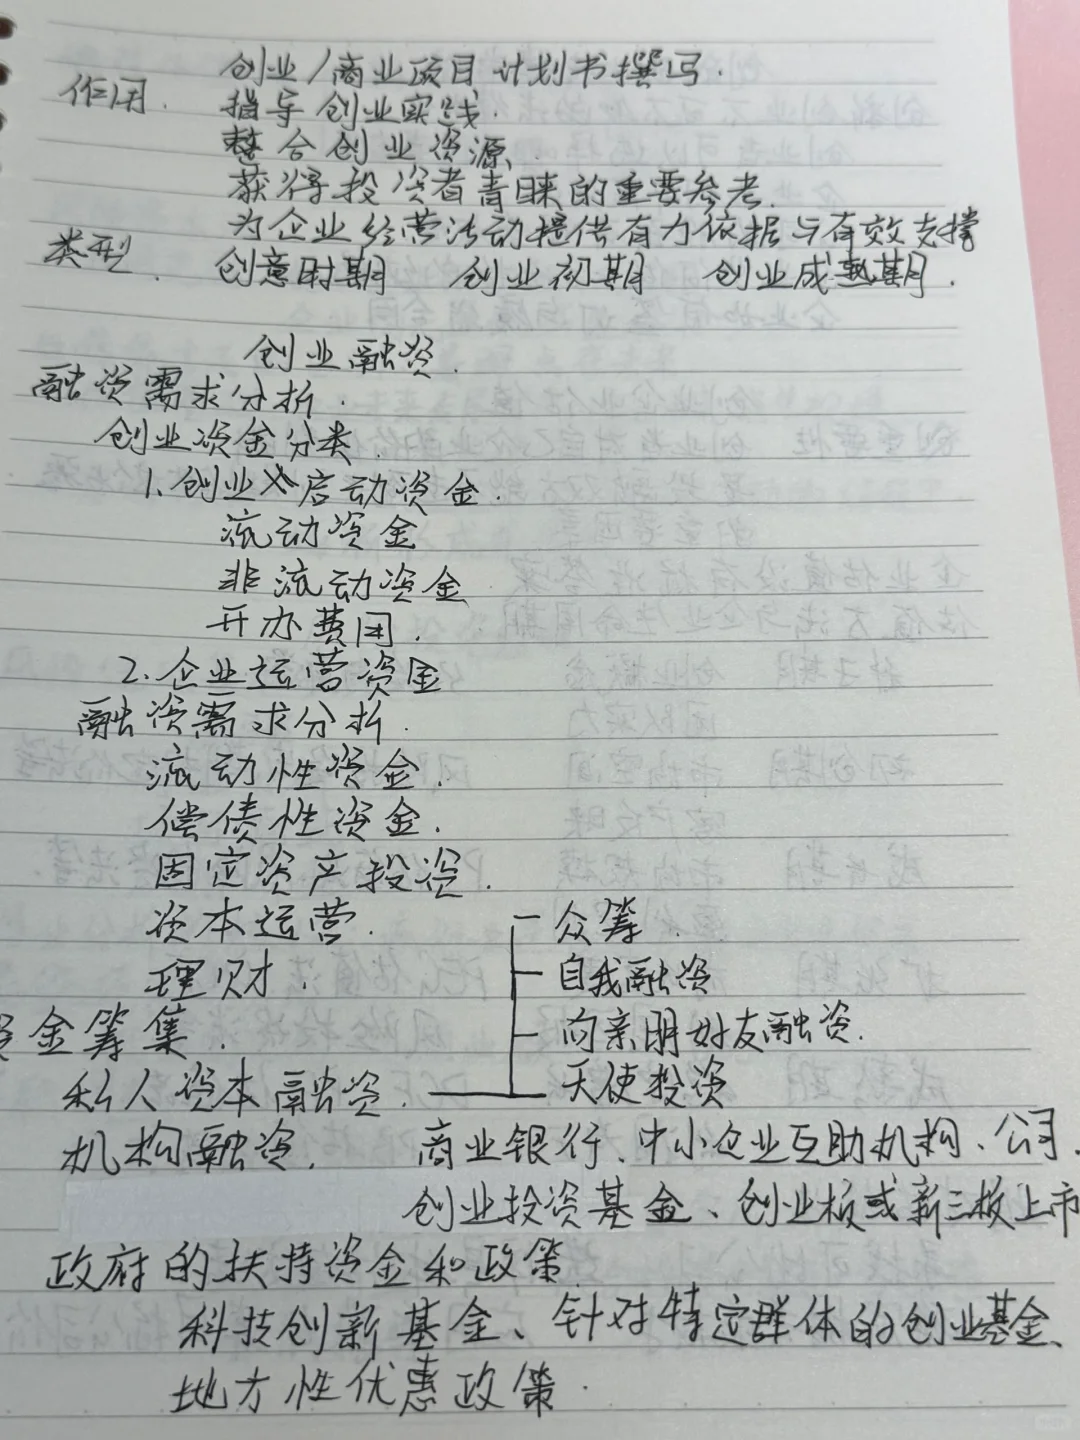 创业/商业项目计划书撰写.
作用. 指导创业实践.
整合创业资源.
获得投资者青睐的重要参考.
为企业经营活动提供有力依据与有效支撑
类型. 创意时期 创业初期 创业成熟期.
创业融资.
融资需求分析.
创业资金分类.
1.创业启动资金.
流动资金
非流动资金
开办费用.
2.企业运营资金
融资需求分析.
流动性资金.
偿债性资金.
固定资产投资.
资本运营.
理财.
资金筹集.
私人资本融资.
众筹.
自我融资
向亲朋好友融资.
天使投资
机构融资. 商业银行、中小企业互助机构、公司、
创业投资基金、创业板或新三板上市
政府的扶持资金和政策.
科技创新基金、针对特定群体的创业基金、
地方性优惠政策.